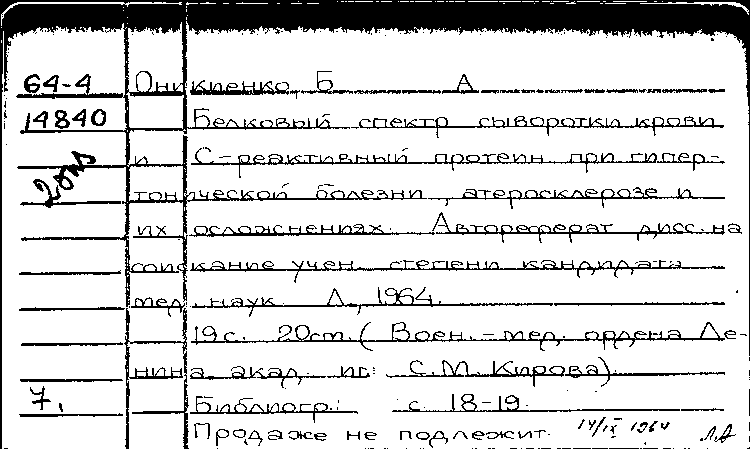 64-4 Оникиенко, Б А
14840 Белковый спектр сыворотки крови
и С-реактивный протеин при гипер-
тонической болезни, атеросклерозе и
их осложнениях. Автореферат дисс. на
соискание учен. степени кандидата
мед. наук Л., 1964.
19 с. 20 см. (Воен.-мед. ордена Ле-
нина акад. им. С.М. Кирова).
7. Библиогр.: с 18-19.
Продаже не подлежит. 14/IX 1964